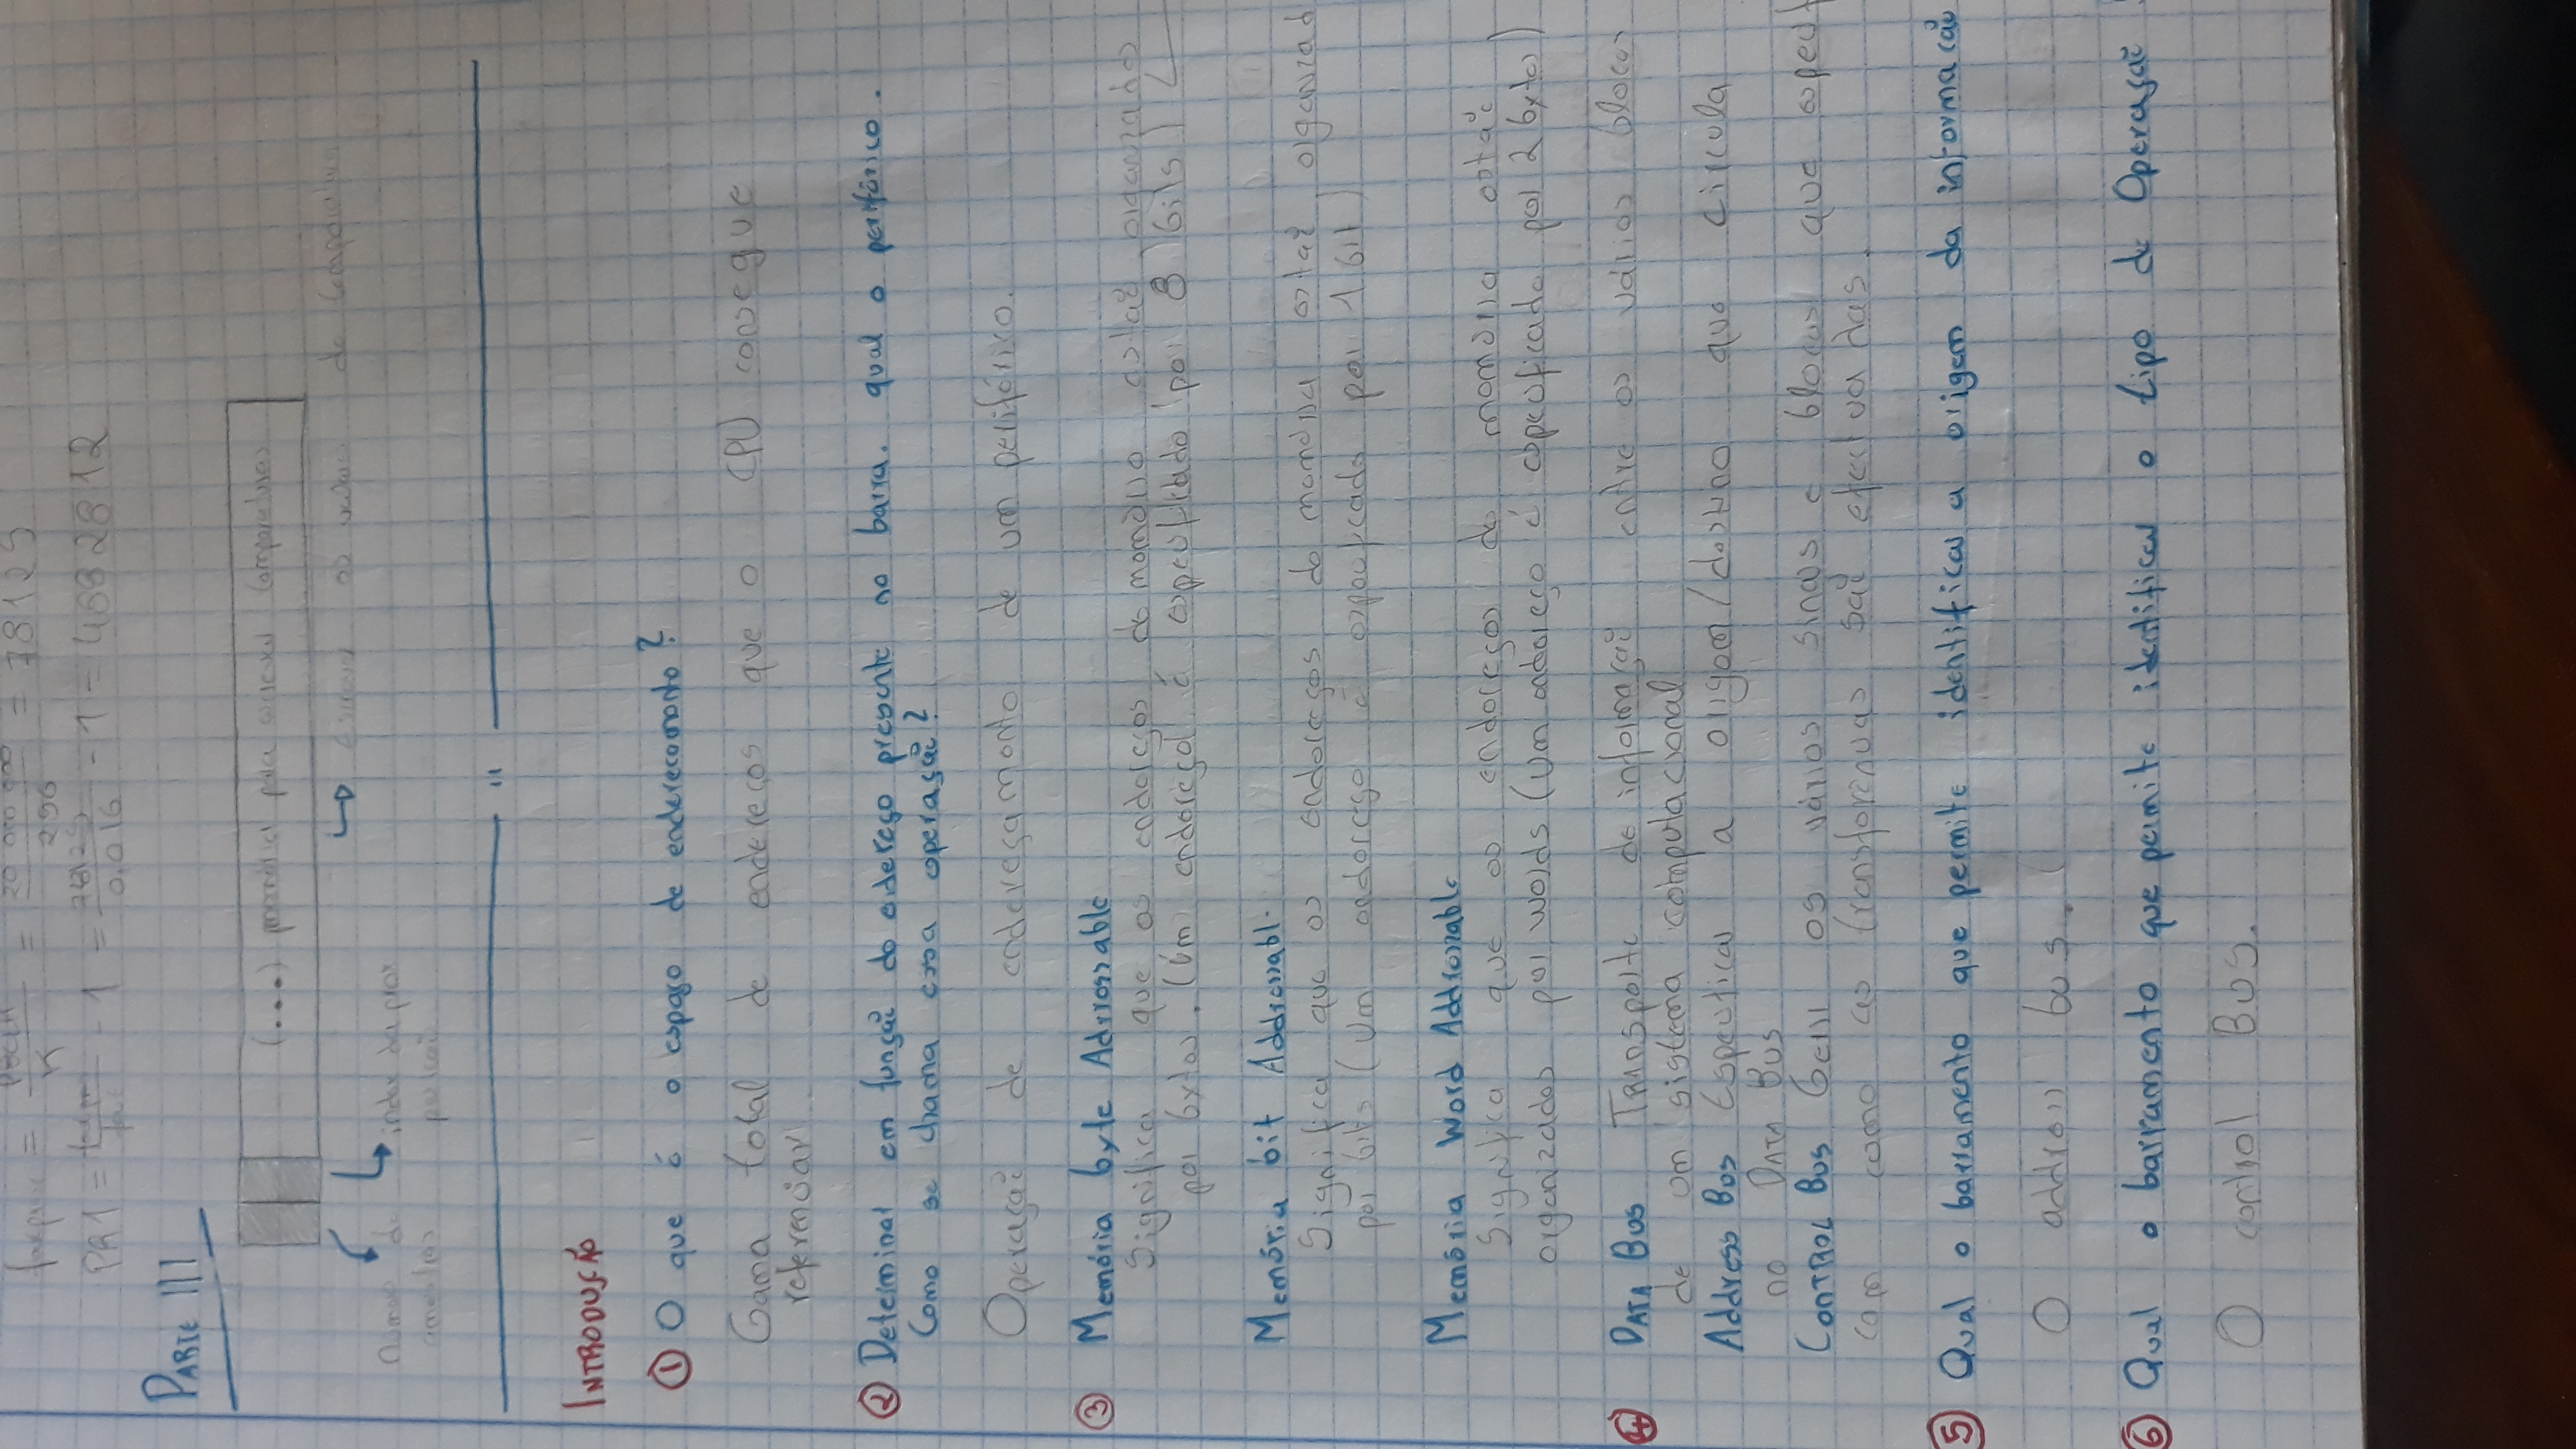 = 20 000 000 / 256 = 78125
PR1 = - 1 = 78125 / 0,016 - 1 = 4882812
PARTE III
(...) memória para escrever temperaturas
número de
amostras
index da prox
posição
escrever os valores de temperatura
INTRODUÇÃO
① O que é o espaço de enderecamento?
Gama total de endereços que o CPU consegue
referenciar
② Determinar em função do endereço presente no barra. qual o periférico.
Como se chama essa operação?
Operação de endereçamento de um periférico.
③ Memória byte Adressable
Significa que os endereços de memória estão organizados
por bytes. (Um endereço é especificado por 8 bits)
Memória bit Addressabl.
Significa que os endereços de memória estão organizad
por bits (Um endereço é especificado por 1 bit)
Memória Word Addressable
Significa que os endereços de memória estão
organizados por words (Um endereço é especificado por 2 bytes)
④ DATA BUS Transporte de informação entre os vários blocos
de um sistema computacional
Address Bus Especificar a origem/destino que circula
no DATA BUS
CONTROL BUS os vários sinais e blocos que especifi
cam como as transferências são efectuadas.
⑤ Qual o barramento que permite identificar a origem da informacão
O address bus.
⑥ Qual o barramento que permite identificar o tipo de Operação
O control Bus.